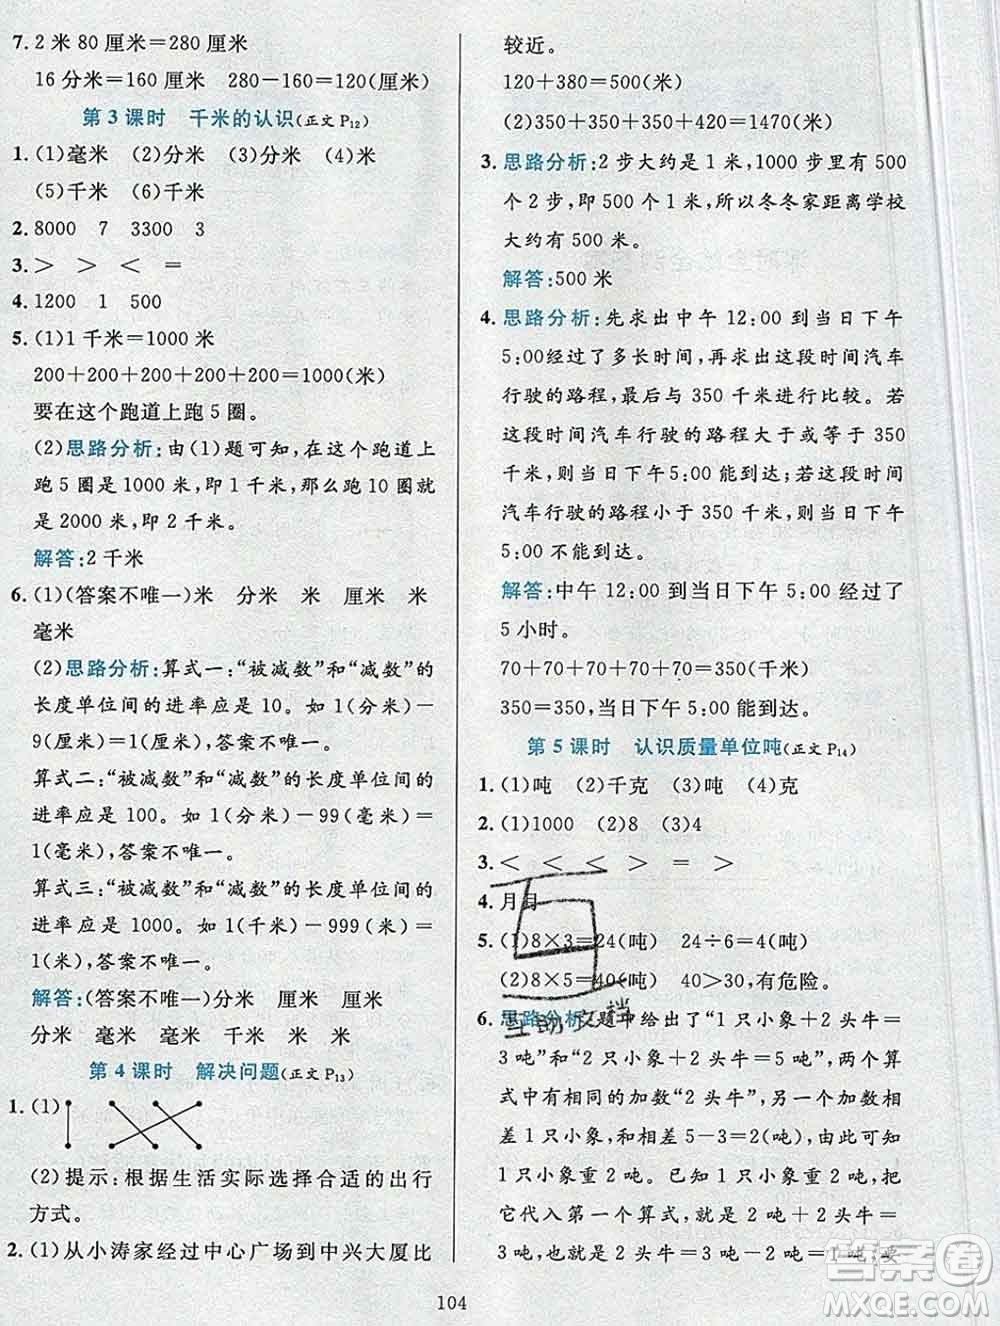 7. 2 米 80 厘米＝280 厘米
16 分米＝160 厘米 280－160＝120(厘米)
第 3 课时 千米的认识(正文 P12)
1. (1)毫米 (2)分米 (3)分米 (4)米
(5)千米 (6)千米
2. 8000 7 3300 3
3. ＞ ＞ ＜ ＝
4. 1200 1 500
5. (1)1 千米＝1000 米
200＋200＋200＋200＋200＝1000(米)
要在这个跑道上跑 5 圈。
(2)思路分析:由(1)题可知,在这个跑道上
跑 5 圈是 1000 米,即 1 千米,那么跑 10 圈就
是 2000 米,即 2 千米。
解答:2 千米
6. (1)(答案不唯一)米 分米 米 厘米 米
毫米
(2)思路分析:算式一:“被减数”和“减数”的
长度单位间的进率应是 10。如 1(分米)－
9(厘米)＝1(厘米),答案不唯一。
算式二:“被减数”和“减数”的长度单位间的
进率应是 100。如 1(分米)－99(毫米)＝
1(毫米),答案不唯一。
算式三:“被减数”和“减数”的长度单位间的
进率应是 1000。如 1(千米)－999(米)＝
1(米),答案不唯一。
解答:(答案不唯一)分米 厘米 厘米
分米 毫米 毫米 千米 米 米
第 4 课时 解决问题(正文 P13)
1. (1)
(2)提示:根据生活实际选择合适的出行
方式。
2. (1)从小涛家经过中心广场到中兴大厦比
较近。
120＋380＝500(米)
(2)350＋350＋350＋420＝1470(米)
3. 思路分析:2 步大约是 1 米,1000 步里有 500
个 2 步,即 500 个 1 米,所以冬冬家距离学校
大约有 500 米。
解答:500 米
4. 思路分析:先求出中午 12:00 到当日下午
5:00经过了多长时间,再求出这段时间汽车
行驶的路程,最后与 350 千米进行比较。若
这段时间汽车行驶的路程大于或等于 350
千米,则当日下午 5:00 能到达;若这段时间
汽车行驶的路程小于 350 千米,则当日下午
5:00 不能到达。
解答:中午 12:00 到当日下午 5:00 经过了
5 小时。
70＋70＋70＋70＋70＝350(千米)
350＝350,当日下午 5:00 能到达。
第 5 课时 认识质量单位吨(正文 P14)
1. (1)吨 (2)千克 (3)吨 (4)克
2. (1)1000 (2)8 (3)4
3. ＜ ＜ ＜ ＞ ＝ ＞
4. 月月
5. (1)8×3＝24(吨) 24÷6＝4(吨)
(2)8×5＝40(吨) 40＞30,有危险。
互助文档
6. 思路分析:题中给出了“1 只小象＋2 头牛＝
3 吨”和“2 只小象＋2 头牛＝5 吨”,两个算
式中有相同的加数“2 头牛”,另一个加数相
差 1 只小象,和相差 5－3＝2(吨),即 1 只小
象重 2 吨。已知 1 只小象重 2 吨,把
它代入第一个算式,就是 2 吨＋2 头牛＝
3 吨,也就是 2 头牛＝3 吨－2 吨＝1 吨,要
104
答案圈
MXQE.COM